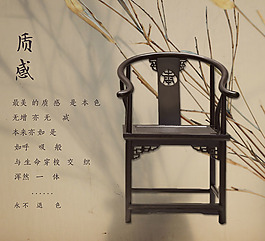 质感
最美的质感是本色
无增亦无减
本来亦如是
如呼吸般
与生命穿梭交织
浑然一体
……
永不退色